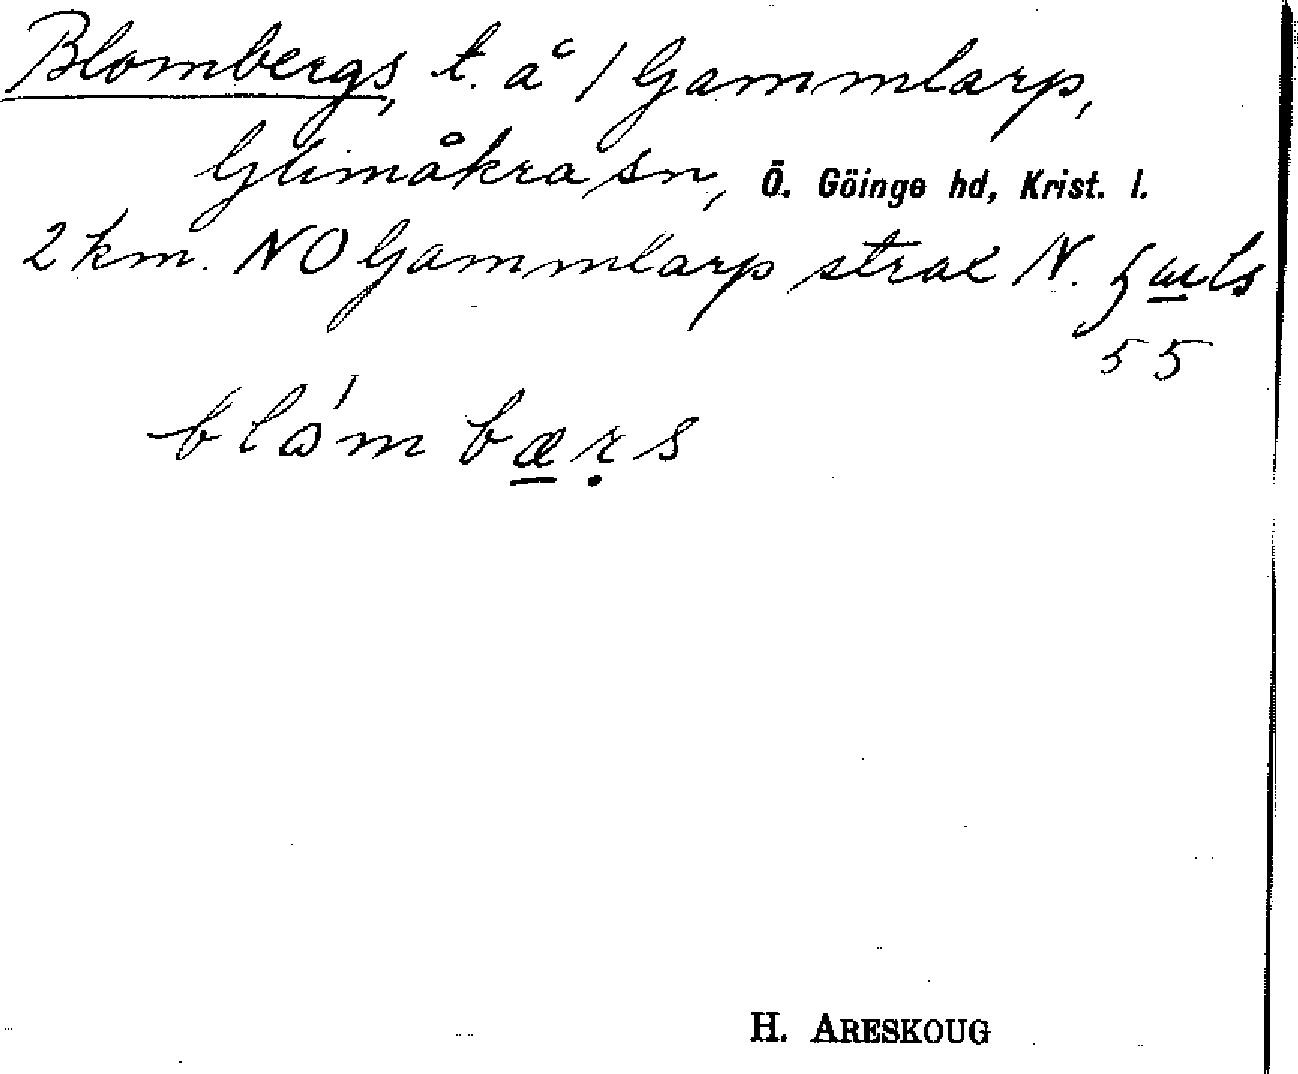 Blombergs, t. å 1 Gammlarp,
Glimåkra sn, Ö. Göinge hd, Krist. l.
2 km. NO Gammlarp strax N.
55
blåm bærs
H. ARESKOUG